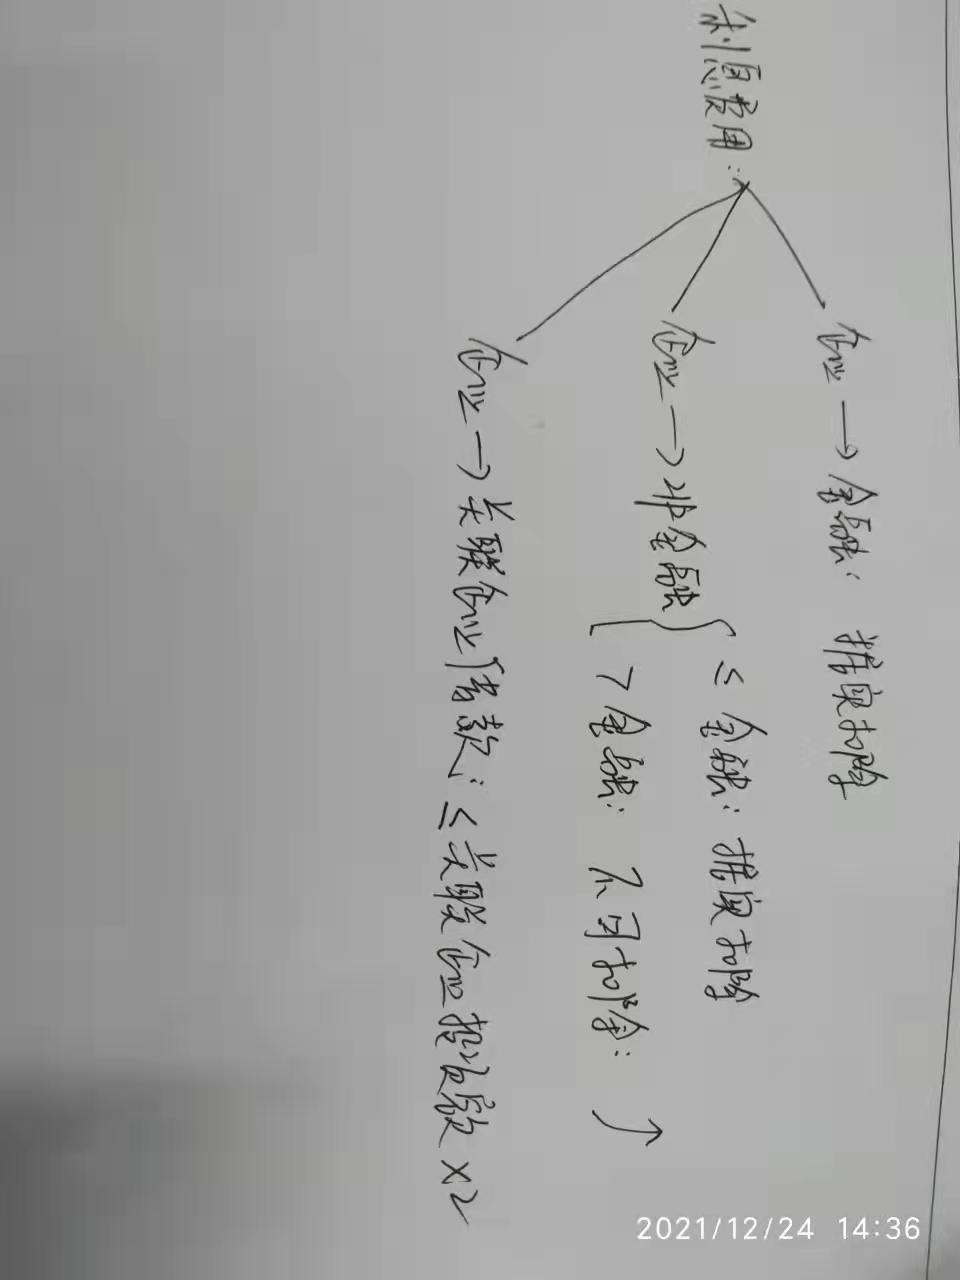 利息费用:
企业→金融: 据实扣除
企业→非金融
≤金融: 据实扣除
>金融: 不可扣除: ↗
企业→关联企业借款: ≤关联企业投资额×2
2021/12/24 14:36